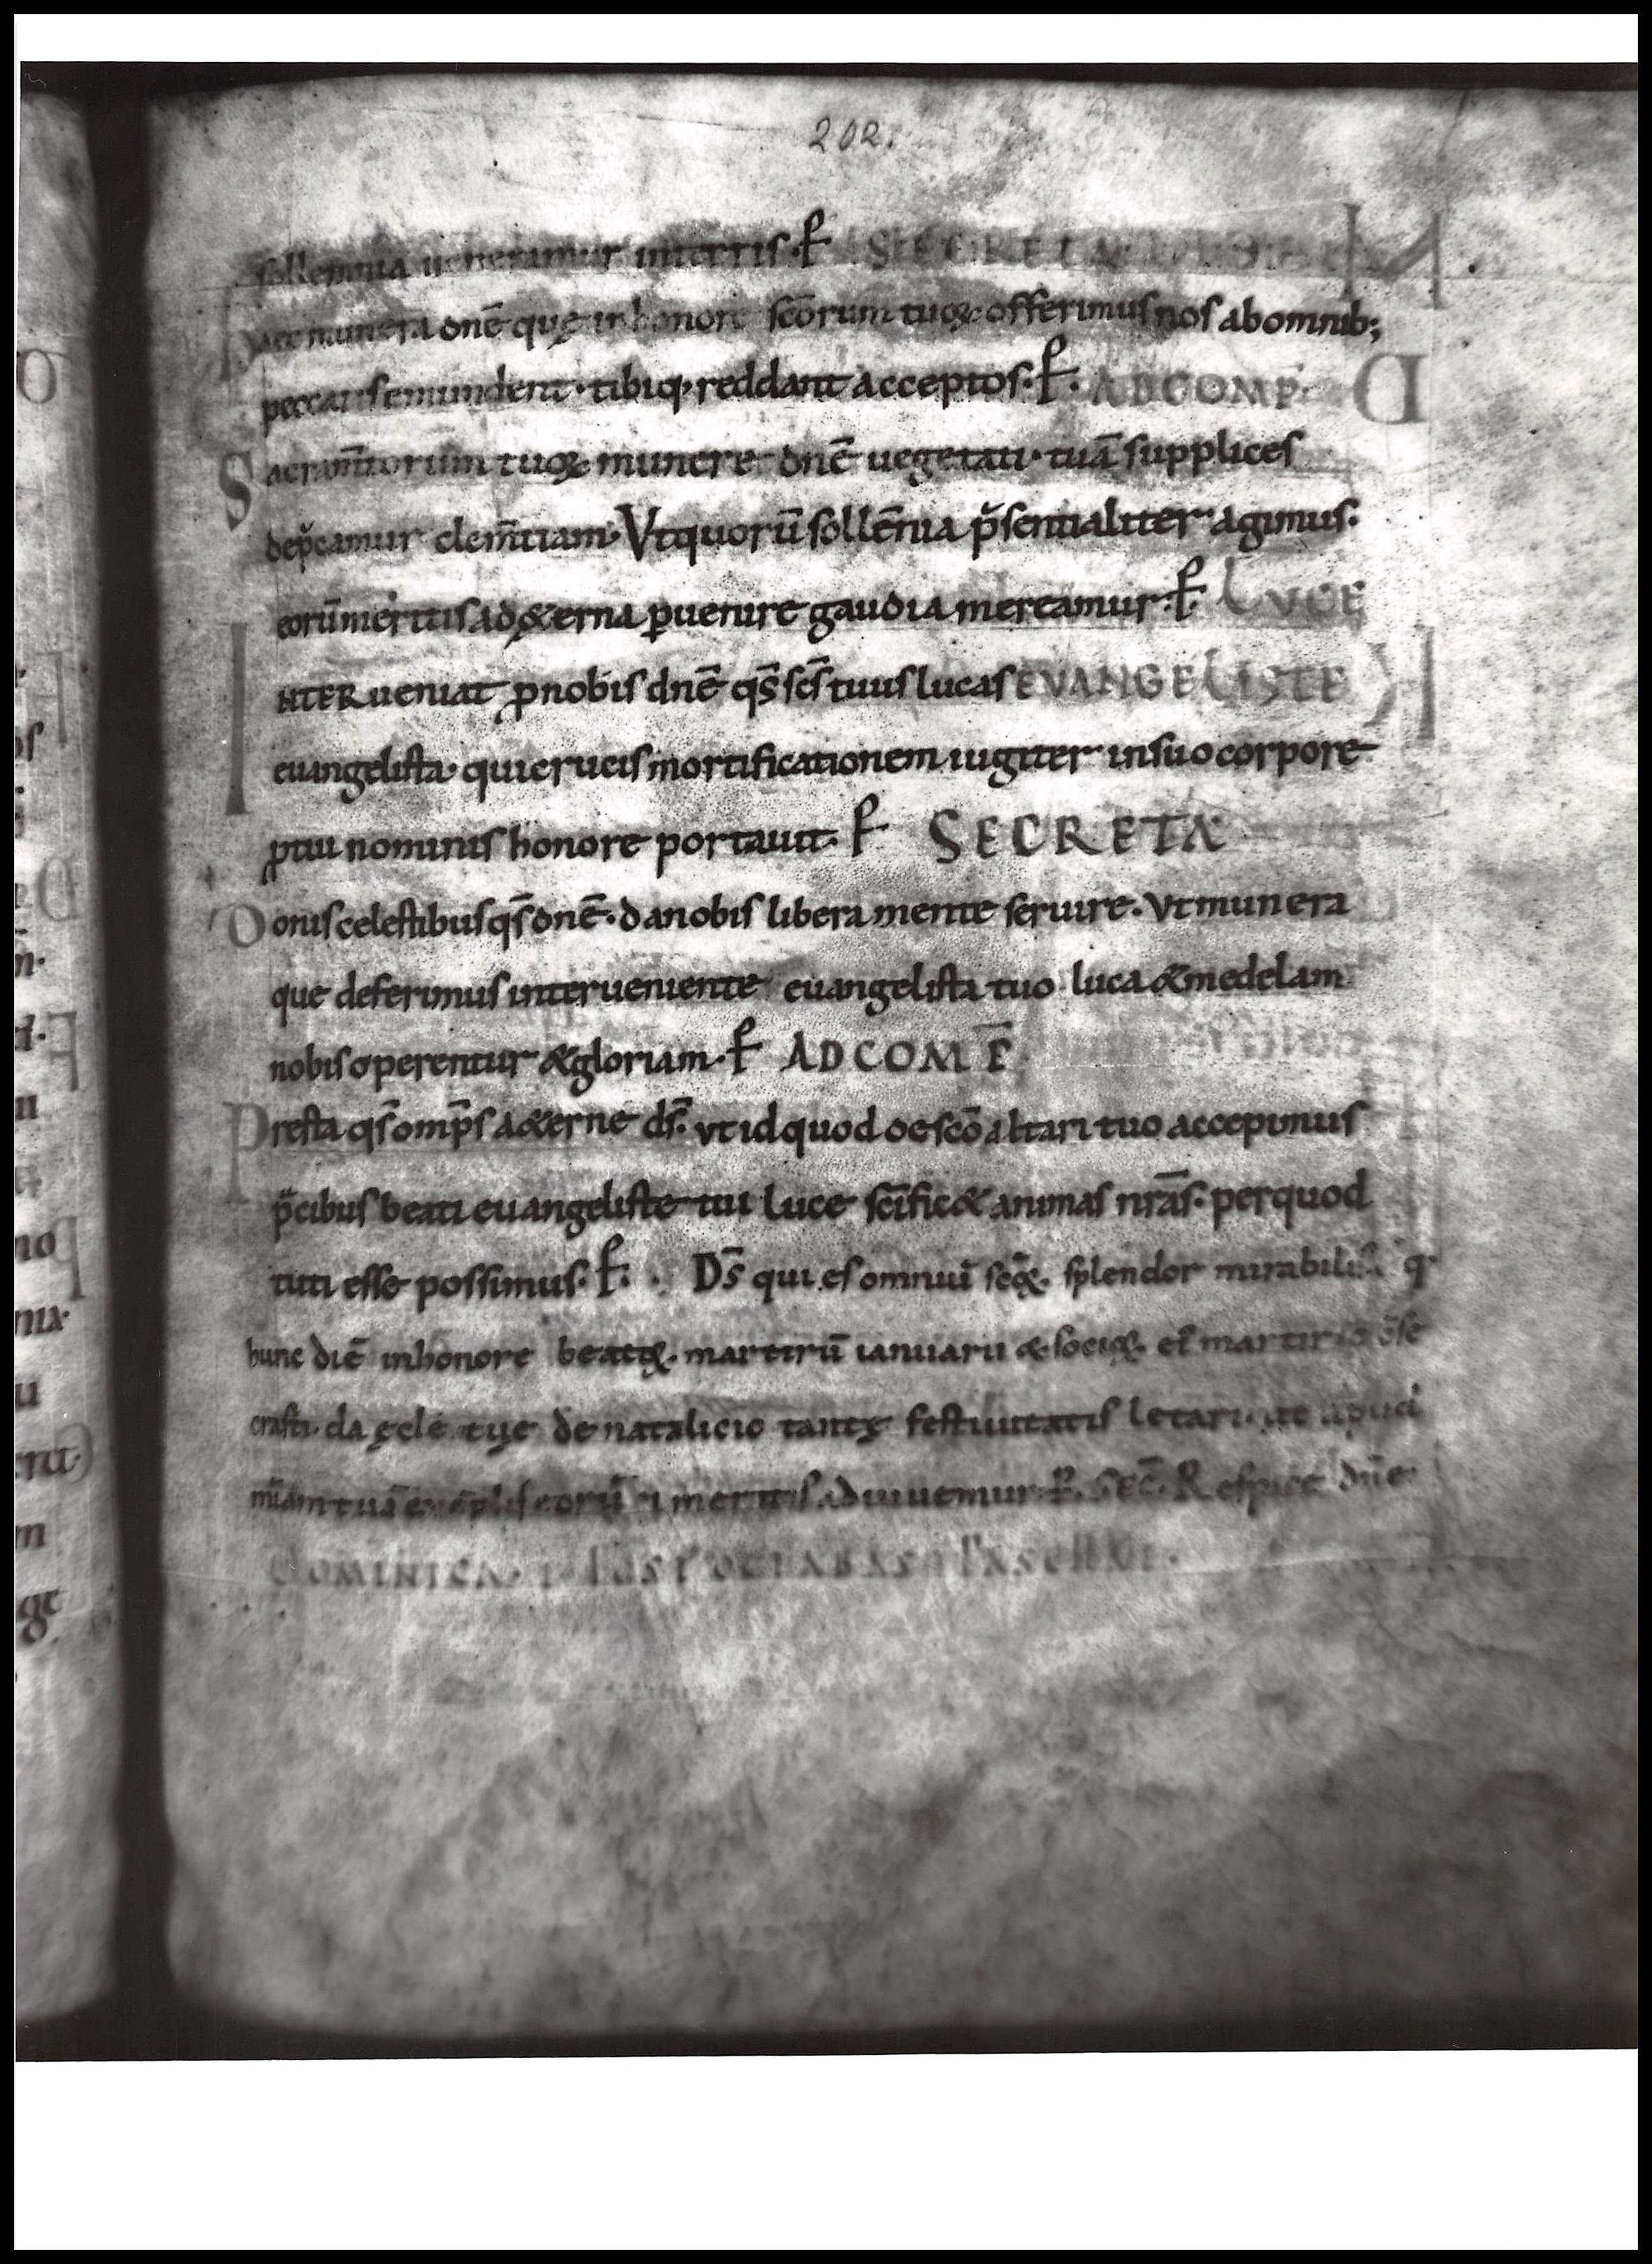 202.
sollemnia ueneramur meritis· ꝑ SECRETA
haec munera dnē quę in honore scōrum tuoꝝ offerimus nos abomnib;
peccatis emundent· tibiq· reddant acceptos· ꝑ· ADCOMP̄
Sacram̄torum tuoꝝ munere dnē uegetati· tuā supplices
dep̄camur clem̄tiam· Vtquorū sollēnia p̄sentialiter agimus·
eorūmeritis ad&erna ꝑuenire gaudia mereamur· ꝑ· LVCE
INTERueniat ꝓnobis dnē qs̄ scs̄ tuus lucas EVANGELISTE
euangelista· quicrucis mortificationem iugiter insuo corpore
ꝓtui nominis honore portauit· ꝑ SECRETA
Donis celestibus qs̄ dnē· danobis libera mente seruire· Vt munera
que deferimus interueniente euangelista tuo luca & medelam
nobis operentur & gloriam· ꝑ ADCOMP̄
Presta qs̄ omp̄s a&erne ds̄· vt id quod de scō altari tuo accepimus
p̄cibus beati euangeliste tui luce scīfic& animas nrās· perquod
tuti esse possimus· ꝑ· Ds̄ qui es omniū scōꝝ· splendor mirabilis q·
hunc diē inhonore beatoꝝ· martirū ianuarii & socioꝝ· ei martirio cōse
crasti· da ęcclē tuę de natalicio tantę festiuitatis letari ut apud
mīam tuā exēplis eorū & meritis adiuuemur· ꝑ· SEC̄· Respice dn̄e
DOMINICA· I· POST OCTABAS PASCHAE·